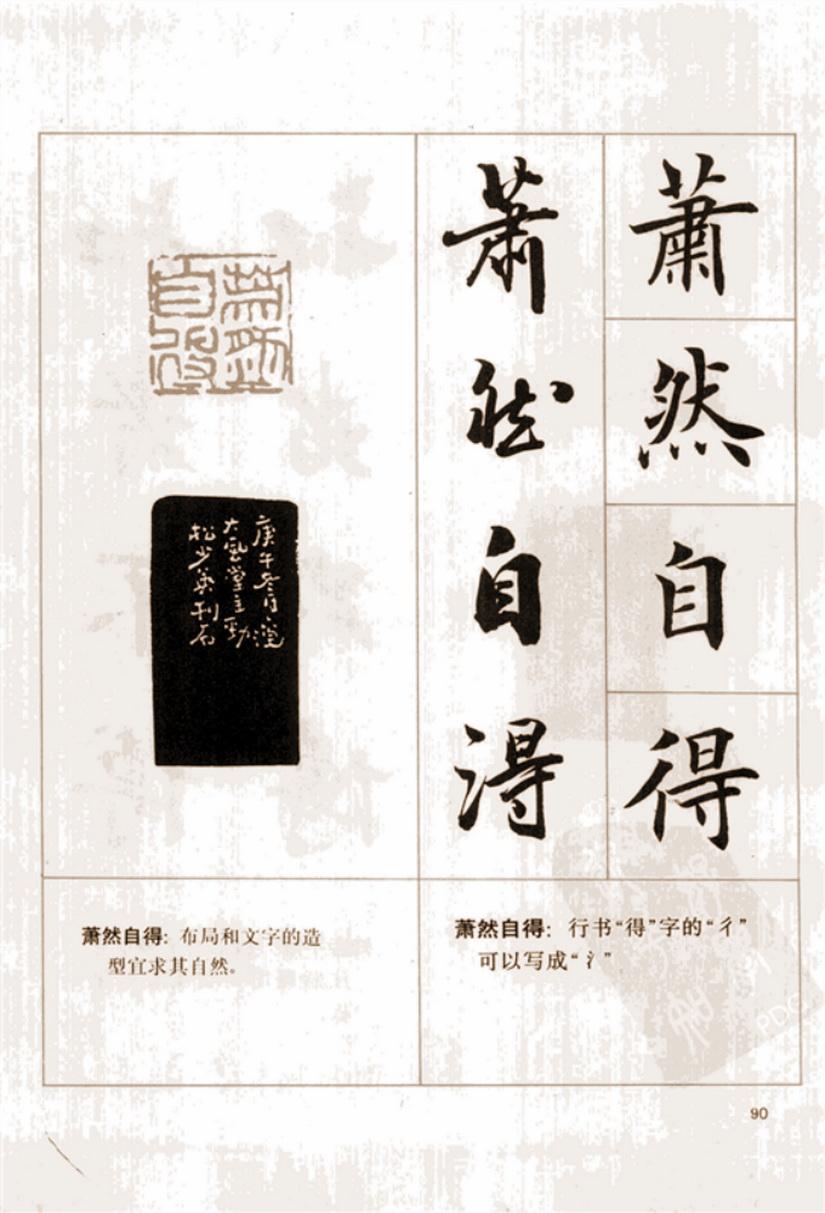 蕭
然
自
得
蕭
然
自
得
蕭然
自得
庚午冬月
大風堂主
松少英刊石
萧然自得：布局和文字的造
型宜求其自然。
萧然自得：行书“得”字的“彳”
可以写成“氵”
90
PDG